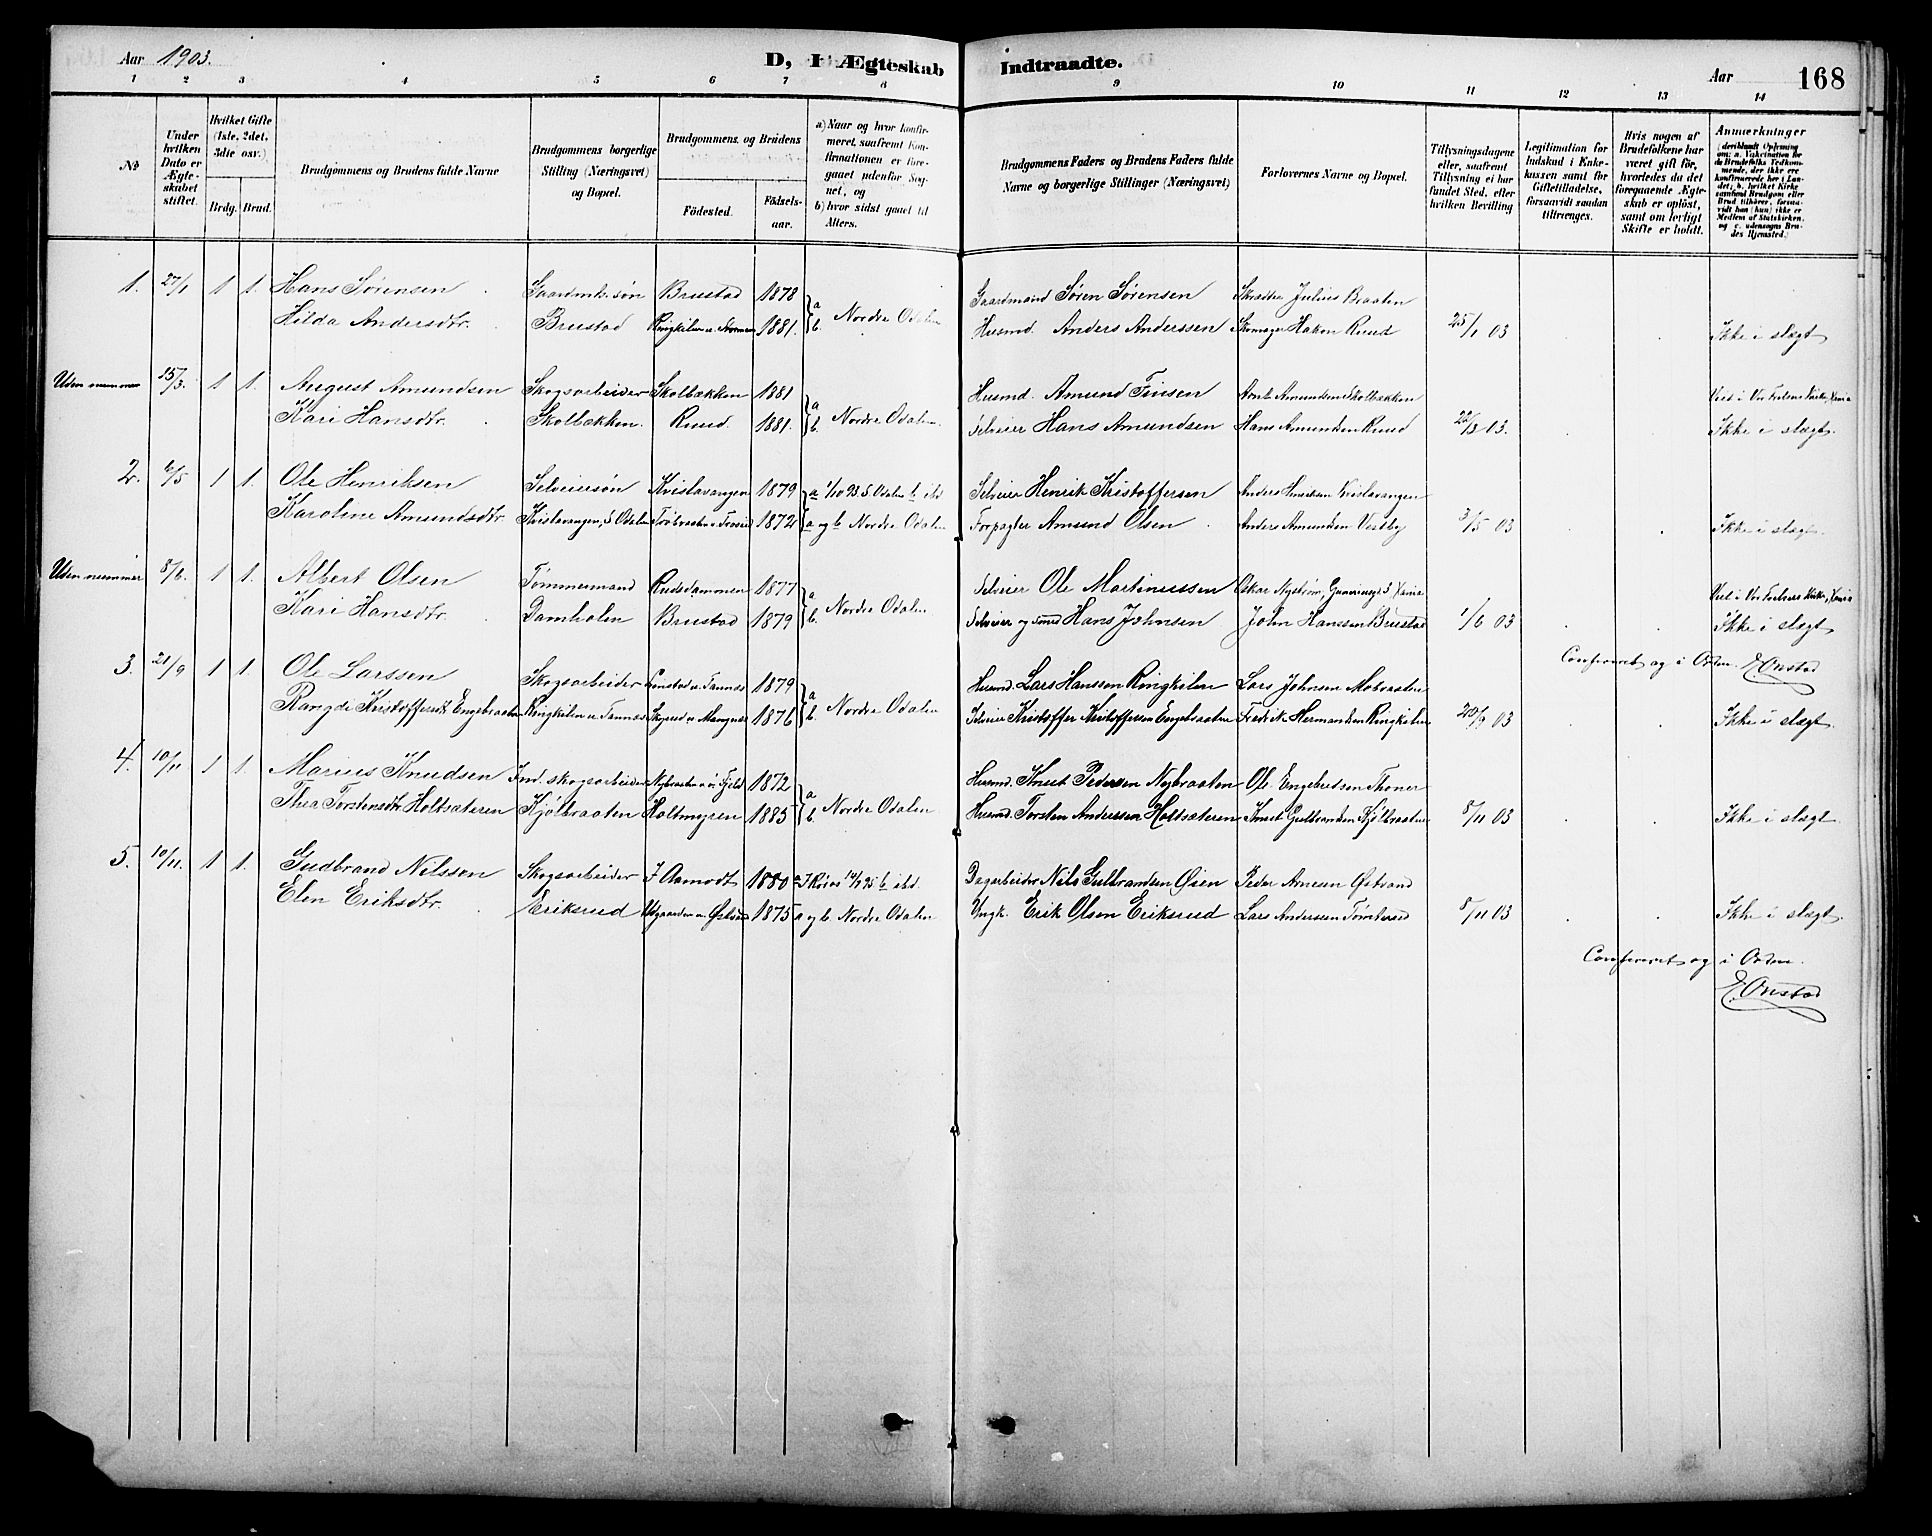 Aar 1903. D, I Ægteskab Indtraadte. Aar 168
1 2 3 4 5 6 7 8 9 10 11 12 13 14
No
Under hvilken Dato er Ægteskabet stiftet.
Hvilket Gifte (1ste, 2det, 3die osv.)
Brdg. Brud.
Brudgommens og Brudens fulde Navne
Brudgommens borgerlige Stilling (Næringsvei) og Bopæl.
Brudgommens og Brudens
Födested. Födsels-aar.
a) Naar og hvor konfirmeret, saafremt Konfirmationen er foregaaet udenför Sognet, og
b) hvor sidst gaaet til Alters.
Brudgommens Faders og Brudens Faders fulde Navne og borgerlige Stillinger (Næringsvei)
Forlovernes Navne og Bopæl.
Tillysningsdagene eller, saafremt Tillysning ei har fundet Sted, efter hvilken Bevilling
Legitimation for Indskud i Enkekassen samt for Giftetilladelse, forsaavidt saadan tiltrænges.
Hvis nogen af Brudefolkene har været gift för, hvorledes da det foregaaende Ægteskab er oplöst, samt om lovligt Skifte er holdt.
Anmærkninger
(deriblandt Oplysning om: a. Vakcination for de Brudefolks Vedkommende, der ikke ere konfirmerede her i Landet; b. hvilket Kirkesamfund Brudgom eller Brud tilhörer, forsaavidt han (hun) ikke er Medlem af Statskirken, og c. udensogns Brudes Hjemsted.)
1. 27/1 1 1. Hans Sørensen Gaardmk.søn Brustad 1878 a Gaardmand Søren Sørensen Skrædder Julius Braaten
Hilda Andersdtr. Brustad Ringkilen 1881. b. Nordre Odalen Husmd. Anders Anderssen Skomager Hakon Ruud 25/1 03 Ikke i slægt
Uden nummer 15/3. 1 1. August Amundsen Skogsarbeider Skolbækken 1881 a Husmd. Amund Finsen Arnt Amundsen Skolbækken
Kari Hansdtr. Skolbækken. Ruud. 1881. b. Nordre Odalen. Selveier Hans Amundsen Hans Amundsen Ruud 22/2 03. Ikke i slægt.
2. 6/5 1 1. Ole Henriksen Selveiersøn Kvislavangen 1879 a 1/10 93 S. Odalen b ibd Selveier Henrik Kristoffersen Anders Henriksen Kvislavangen
Karoline Amundsdtr. Kvislavangen, S Odalen 1872 a og b Nordre Odalen Forpagter Amund Olsen Anders Amundsen Vestby 3/5 03 Ikke i slægt.
Uden nummer 8/6. 1 1. Albert Olsen Tømmermand Rudsdammen 1877 a Selveier Ole Martinussen Oskar Nystrøm,
Kari Hansdtr. Damholen Brustad 1879 b. Nordre Odalen Selveier og smed Hans Johnsen John Hanssen Brustad 1/6 03 Ikke i slægt
Confereret og i Orden. E. Onstad
3. 21/9 1 1. Ole Larssen Skogsarbeider 1879 a Husmd. Lars Hanssen Ringkilen Lars Johnsen Mobraaten
Rangdi Kristoffersdtr. Engebraaten Ringkilen u. Tannæs Skyrud u. Mangnæs 1876 b. Nordre Odalen Selveier Kristoffer Kristoffersen Engebraaten Fredrik Hermandsen Ringkilen 20/9 03 Ikke i slægt.
4. 10/11 1 1. Marius Knudsen Ind. skogsarbeider Nybraaten u. Fjeld 1872 a Husmd. Knut Pedersen Nybraaten Ole Engebretsen Thoner
Thea Torstensdtr. Holtsæteren Kjølbraaten Holtmyren 1885 b. Nordre Odalen Husmd. Torsten Anderssen Holtsæteren Knut Gulbrandsen Kjølbraaten 8/11 03 Ikke i slægt
5. 10/11. 1 1. Gudbrand Nilssen Skogsarbeider I Aamodt 1880 a I Røros 14/7 95 b ibd. Dagarbeider Nils Gulbrandsen Øien Peder Arnesen Østvand
Elen Eriksdtr. Eriksrud 1875 a og b. Nordre Odalen Ungk. Erik Olsen Eriksrud Lars Anderssen 8/11 03 Ikke i slægt.
Confereret og i Orden.
E. Onstad